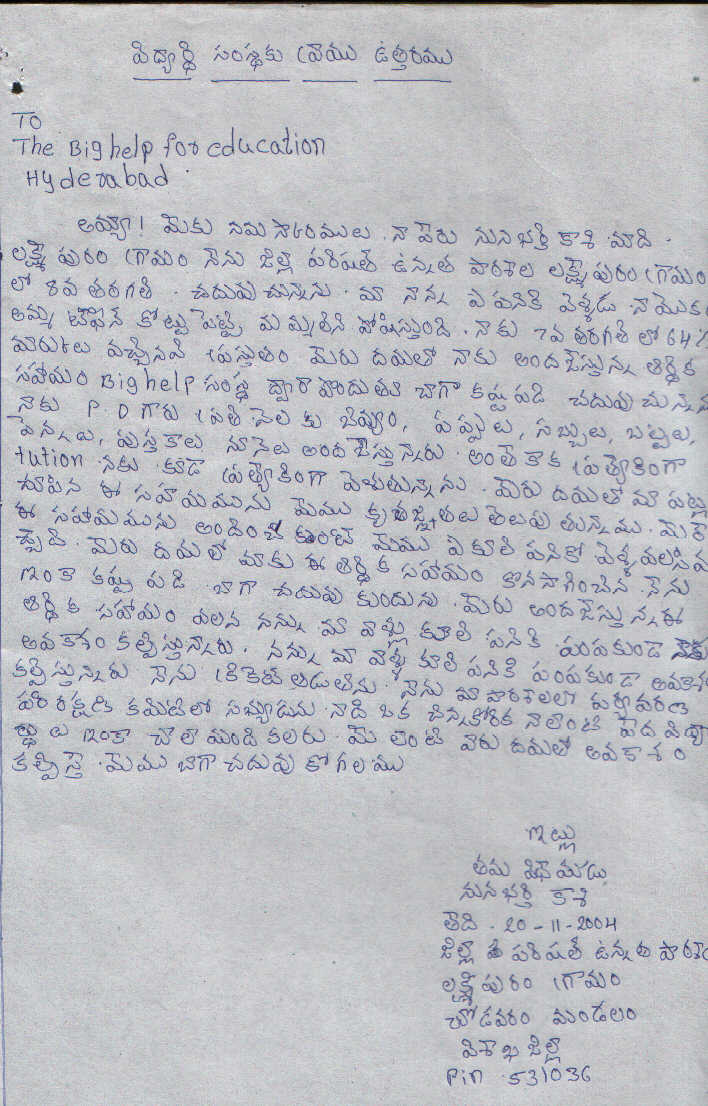 విద్యార్థి సంస్థకు వ్రాయు ఉత్తరము
To
The Big help for education
Hyderabad
అయ్యా! మీకు నమస్కారములు. నా పేరు నునభర్తి కాశి మాది.
లక్ష్మీపురం గ్రామం నేను జిల్లా పరిషత్ ఉన్నత పాఠశాల లక్ష్మీపురం గ్రామం
లో 8వ తరగతి. చదువుచున్నాను. మా నాన్న ఏ పనికి వెళ్ళడు నా యొక్క
అమ్మ టిఫిన్ కొట్టు పెట్టి మమ్మల్ని పోషిస్తుంది. నాకు 7వ తరగతి లో 64%
మార్కులు వచ్చినవి ప్రస్తుతం మీరు దయతో నాకు అందజేస్తున్న ఆర్థిక
సహాయం Big help సంస్థ ద్వారా పొందుతూ బాగా కష్టపడి చదువుచున్నాను
నాకు P.D గారు ప్రతి నెలకు బియ్యం, పప్పులు, సబ్బులు, బట్టలు,
పెన్నులు, పుస్తకాలు నూనెలు అందజేస్తున్నారు. అంతే కాక ప్రత్యేకంగా
tution నకు కూడా ప్రత్యేకంగా వెళుతున్నాను. మీరు దయతో మా పట్ల
చూపిన ఈ సహాయమును మేము కృతజ్ఞతలు తెలుపుతున్నాము. మీరే
ఈ సహాయమును అందించక కుంటే మేము ఏ కూలి పనికో వెళ్ళవలసివ
చ్చేది. మీరు దయతో మాకు ఈ ఆర్థిక సహాయం కొనసాగించిన నేను
ఇంకా కష్టపడి బాగా చదువుకుందును. మీరు అందజేస్తున్న ఈ
ఆర్థిక సహాయం వలన నన్ను మా వాళ్లు కూలి పనికి పంపకుండా నాకు
అవకాశం కల్పిస్తున్నారు. నన్ను మా వాళ్ళు కూలి పనికి పంపకుండా అవకాశం
కల్పిస్తున్నారు నేను క్రికెట్ ఆడుతాను. నేను మా పాఠశాలలో పర్యావరణ
పరిరక్షణ కమిటిలో సభ్యుడను. నాది ఒక చిన్న కోరిక నాలాంటి పేద విద్యా
ర్థులు ఇంకా చాలా మంది కలరు. మీ లాంటి వారు దయతో అవకాశం
కల్పిస్తే. మేము బాగా చదువుకోగలము
ఇట్లు
తమ విధేయుడు
నునభర్తి కాశి
తేది. 20-11-2004
జిల్లా పరిషత్ ఉన్నత పాఠశాల
లక్ష్మీపురం గ్రామం
చోడవరం మండలం
విశాఖ జిల్లా
Pin .531036